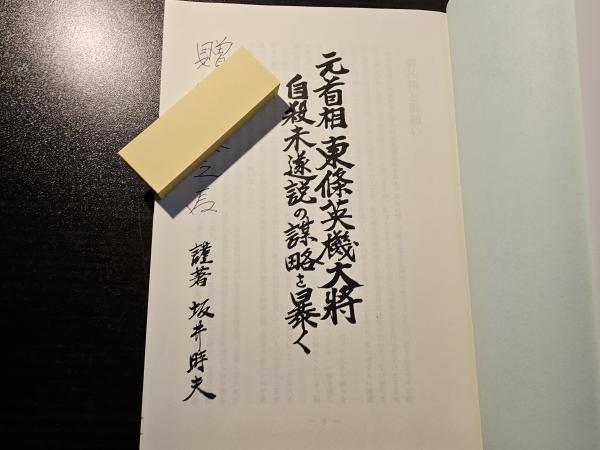 元首相東條英機大將
自殺未遂説の謀略を暴く
謹著 坂井時夫
贈